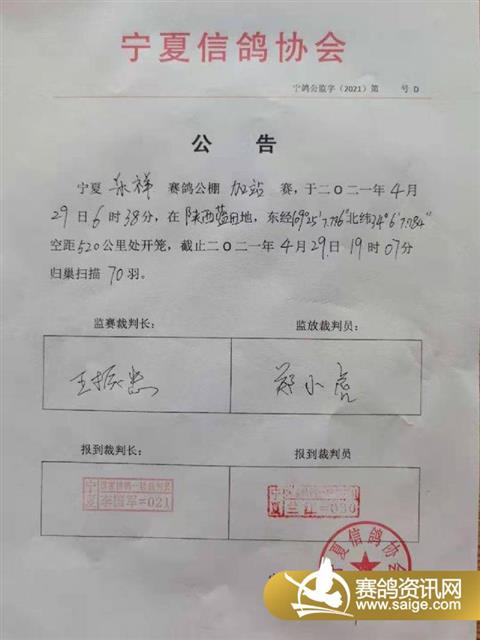 宁夏信鸽协会
宁鸽公监字（2021）第 号 D
公 告
宁夏 永祥 赛鸽公棚 加站 赛，于二〇二一年 4 月
29 日 6 时 38 分，在 陕西蓝田 地，东经 109°25′7.796″ 北纬 34°6′7.784″
空距 520 公里处开笼，截止二〇二一年 4 月 29 日 19 时 07 分
归巢扫描 70 羽。
监赛裁判长： 监放裁判员：
王振忠 郑小虎
报到裁判长： 报到裁判员
宁夏 国家信鸽一级裁判员 李国军=021
宁夏信鸽协会
赛鸽资讯网
www.saige.com